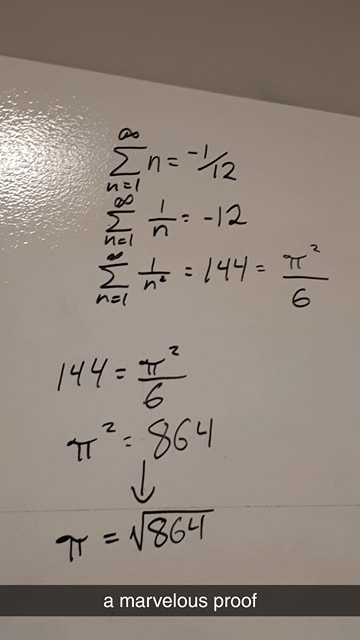 ∞
∑ n = -1/12
n=1
∞
∑ 1/n = -12
n=1
∞
∑ 1/n² = 144 = π²/6
n=1
144 = π²/6
π² = 864
↓
π = √864
a marvelous proof